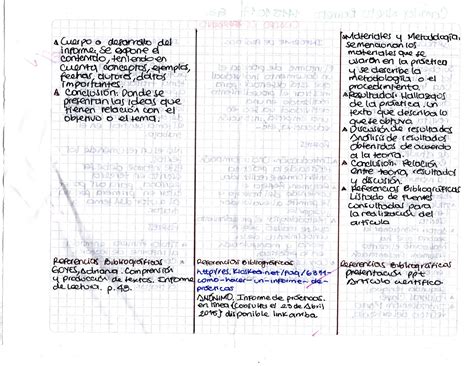 ▲ Cuerpo o desarrollo del
informe, se expone el
contenido, teniendo en
cuenta conceptos, ejemplos,
fechas, autores, datos
importantes.
▲ Conclusión: Donde se
presentan las ideas que
tienen relación con el
objetivo o el tema.
Referencias Bibliográficas
GOYES, Adriana. Comprensión
y producción de textos. Informe
de lectura, p. 48.
Referencias Bibliográficas
como-hacer-un-informe-de-
prácticas
ANÓNIMO, Informe de prácticas.
en línea (consulta el 23 de Abril
2015) disponible link arriba
▲ Materiales y Metodología.
se mencionan los
materiales que se
usaron en la práctica
y se describe la
metodología o el
procedimiento.
▲ Resultados: Hallazgos
de la práctica. un
texto que describa lo
que se obtuvo.
▲ Discusión de resultados
Análisis de resultados
obtenidos de acuerdo
a la teoría.
▲ Conclusión: Relación
entre teoría, resultados
y discusión.
▲ Referencias Bibliográficas
Listado de fuentes
consultadas para
la realización del
artículo
Referencias Bibliográficas
presentación ppt
Artículo científico